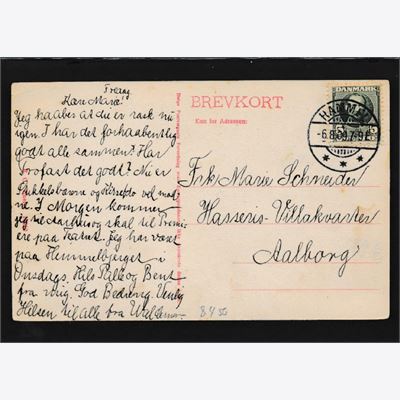 Fredag
Kære Marie!
Jeg haaber at du er rask nu
igen. I har det forhaabentlig
godt alle sammen? Har
Trofast det godt? Nu er
vel med-
I Morgen kommer
jeg til skal til Premi-
ere paa Teatret. Jeg har været
paa Himmelbjerget i
Onsdags. Hils Palle og Bent
fra mig. God Bedring. Venlig
Hilsen til alle fra
BREVKORT
Kun for Adressen:
DANMARK
HAMMEL
-6.8.09.7-9E
5
Frk Marie Schneider
Hasseris-Villakvarter
Aalborg